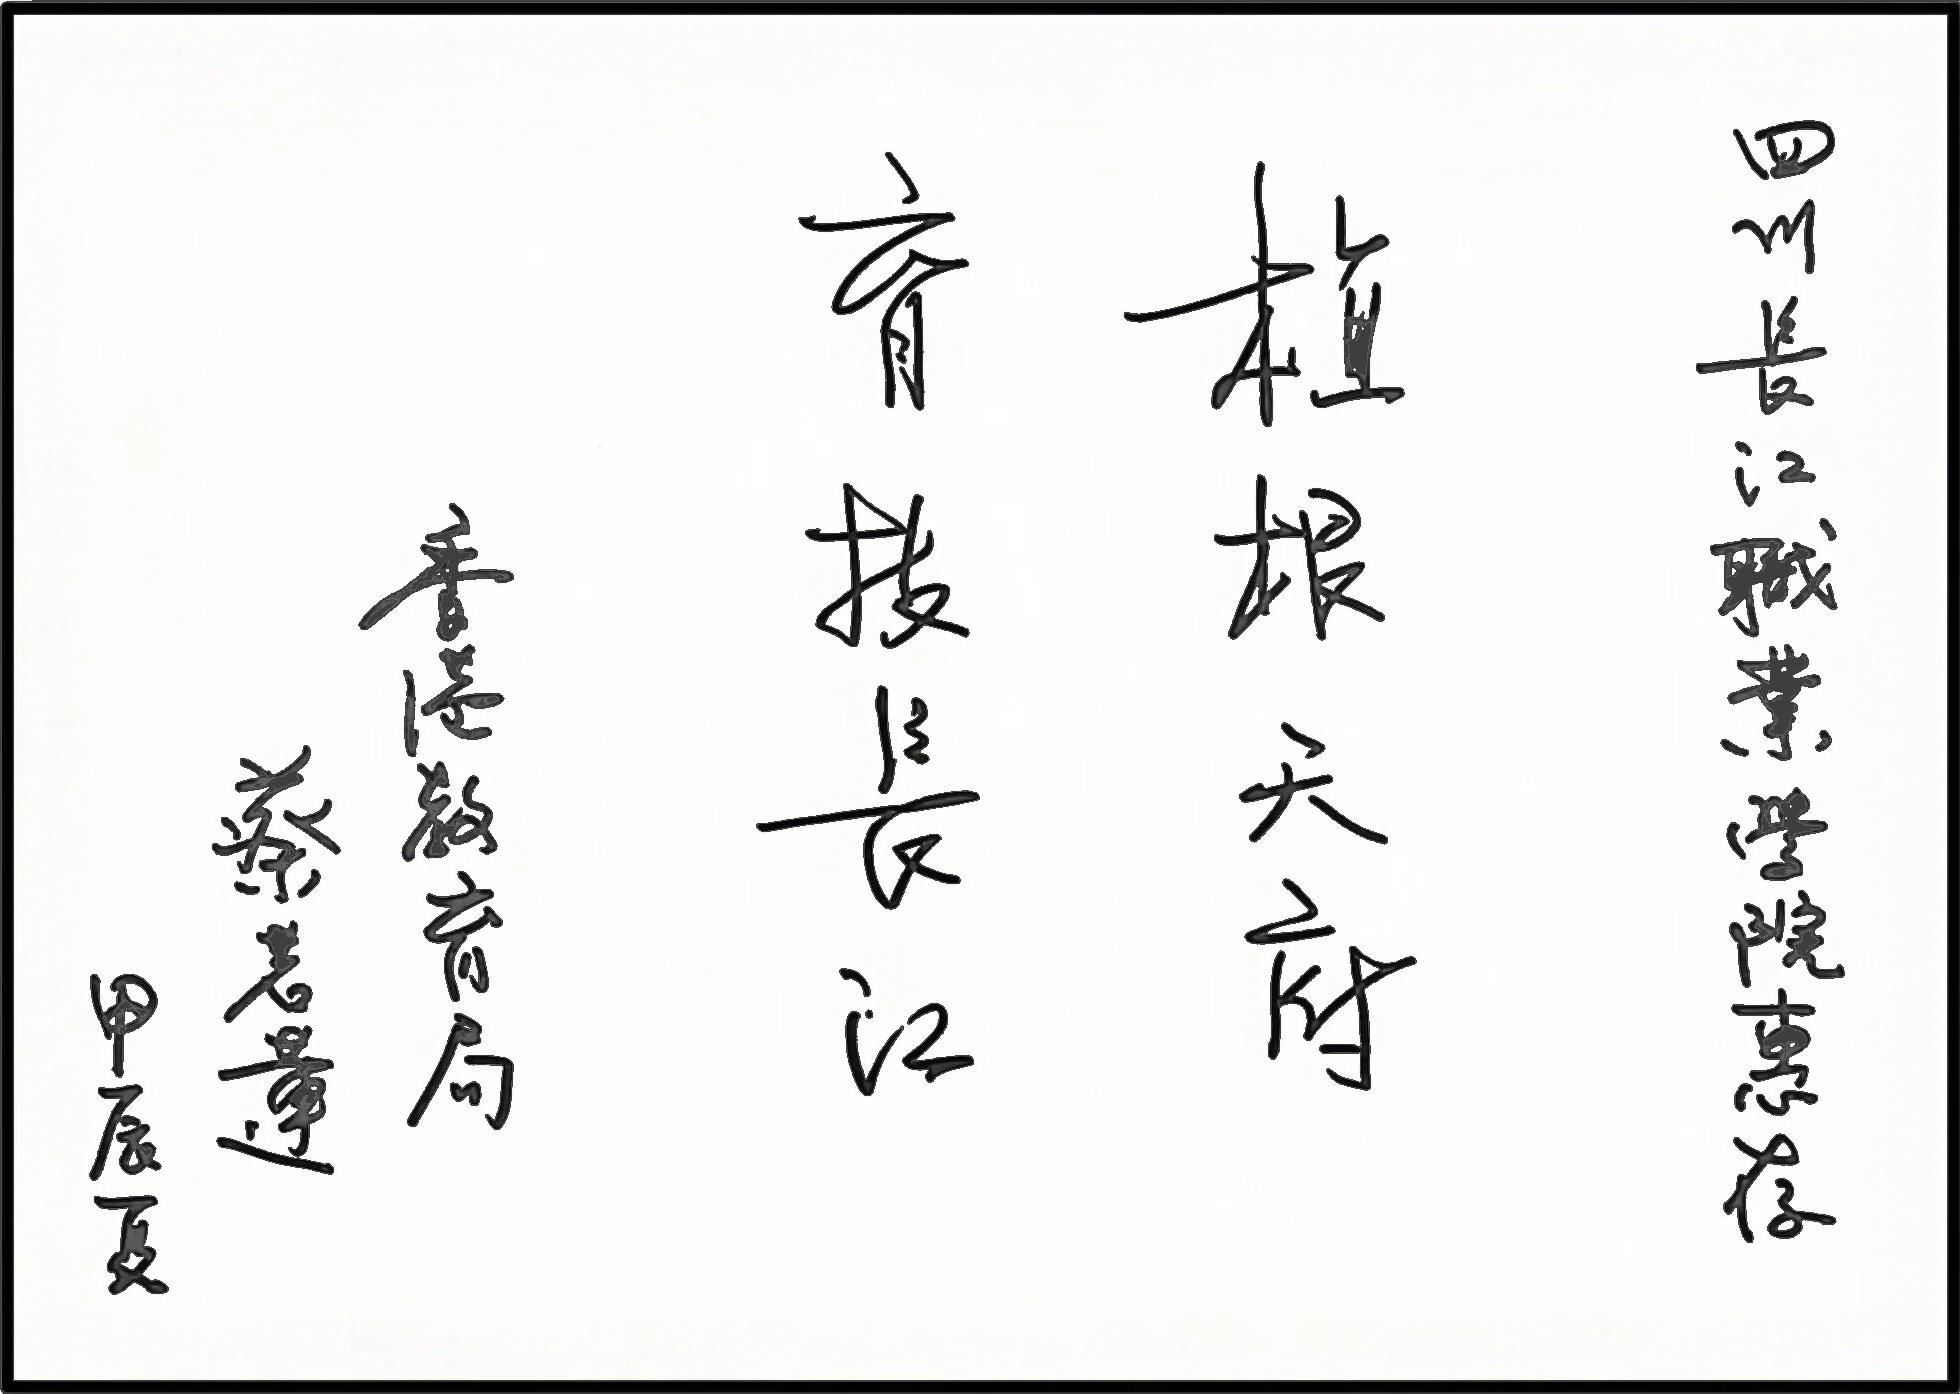 四川長江職業學院惠存
植根天府
育技長江
香港教育局
蔡若蓮
甲辰夏